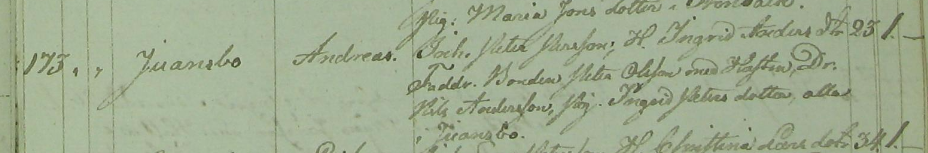 Pig: Maria Jons dotter i
173. „ „ Juansbo Andreas. Inh. Peter Persson, H. Ingrid Anders dtr 23 1. —
Faddr. Bonden Peter Olsson med Hustru, Dr.
Nils Andersson, Pig. Ingrid Peters dotter, alla
i Juansbo.
H. Christina Lars dotr 34 1.